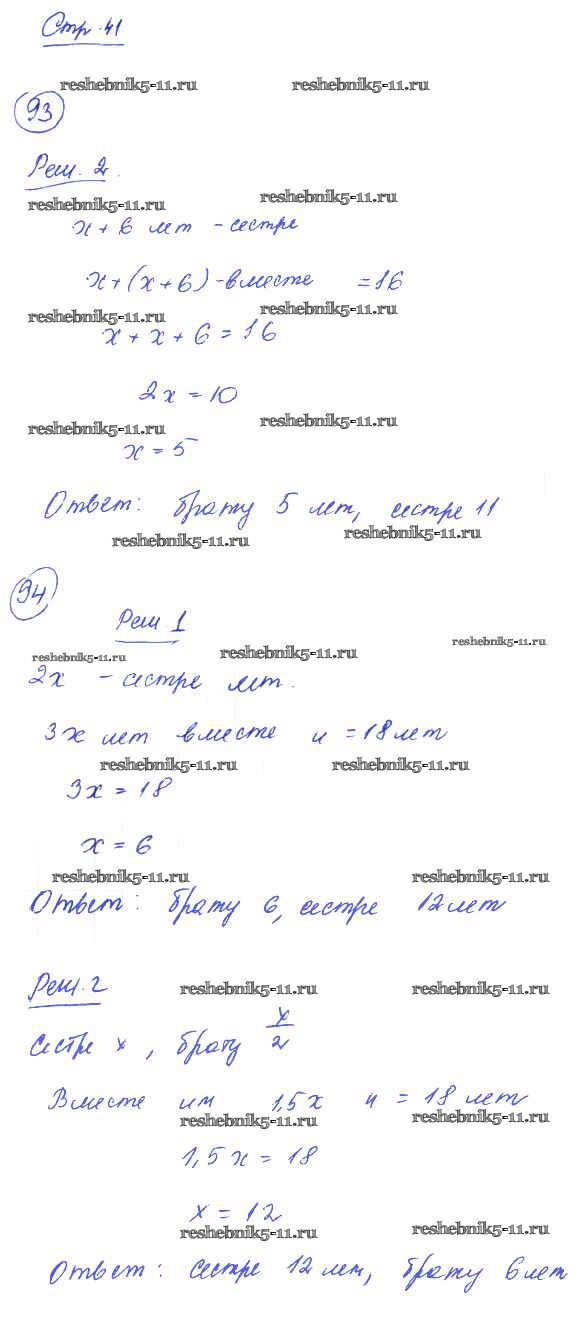 Стр. 41
reshebnik5-11.ru reshebnik5-11.ru
93
Реш. 2.
reshebnik5-11.ru reshebnik5-11.ru
x + 6 лет - сестре
x + (x + 6) - вместе = 16
reshebnik5-11.ru reshebnik5-11.ru
x + x + 6 = 16
2x = 10
reshebnik5-11.ru reshebnik5-11.ru
x = 5
Ответ: брату 5 лет, сестре 11
reshebnik5-11.ru reshebnik5-11.ru
94
Реш. 1
reshebnik5-11.ru reshebnik5-11.ru reshebnik5-11.ru
2x - сестре лет.
3x лет вместе и = 18 лет
reshebnik5-11.ru reshebnik5-11.ru
3x = 18
x = 6
reshebnik5-11.ru reshebnik5-11.ru
Ответ: брату 6, сестре 12 лет
Реш. 2 reshebnik5-11.ru reshebnik5-11.ru
Сестре x, брату x/2
Вместе им 1,5x и = 18 лет
reshebnik5-11.ru reshebnik5-11.ru
1,5x = 18
x = 12
reshebnik5-11.ru reshebnik5-11.ru
Ответ: сестре 12 лет, брату 6 лет